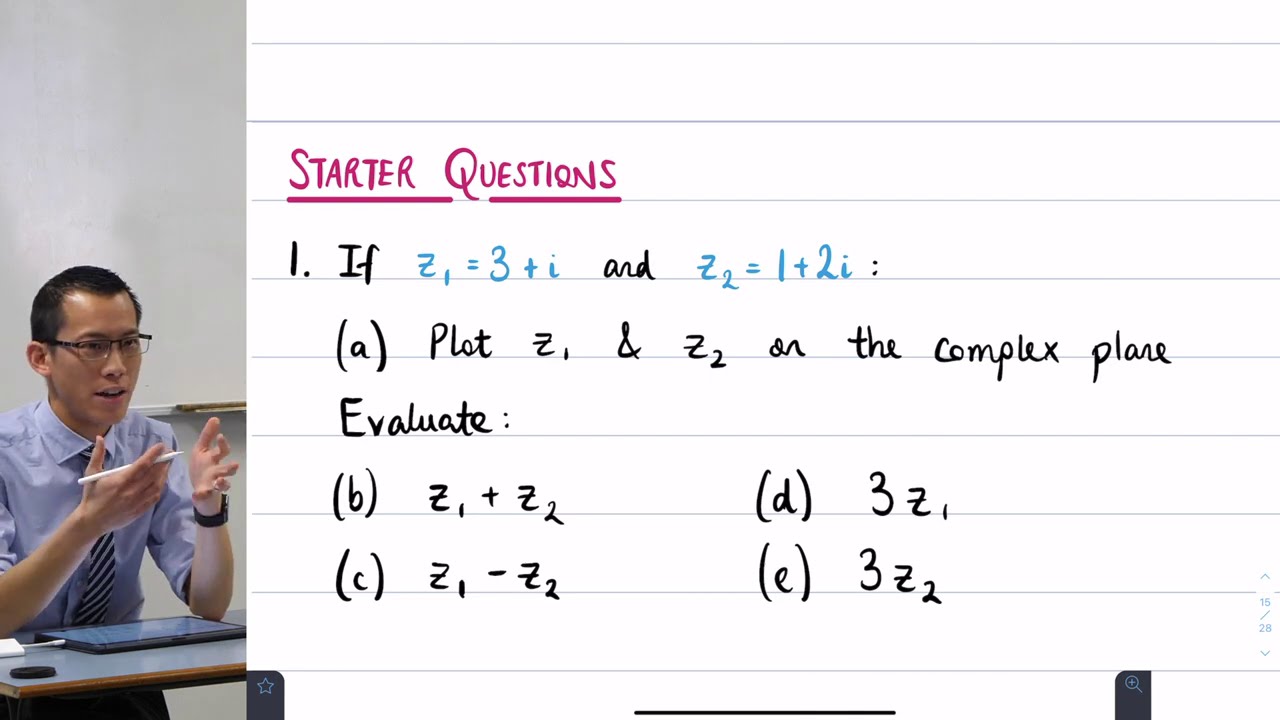 STARTER QUESTIONS
1. If z₁ = 3 + i and z₂ = 1 + 2i :
(a) Plot z₁ & z₂ on the complex plane
Evaluate :
(b) z₁ + z₂ (d) 3z₁
(c) z₁ - z₂ (e) 3z₂
15
/
28